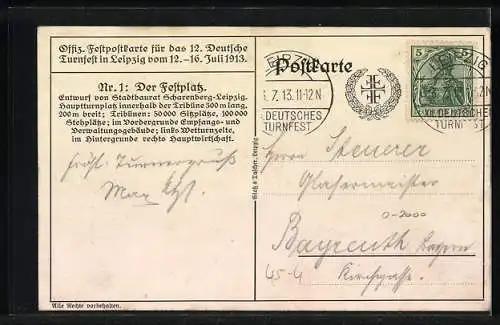 Offiz. Festpostkarte für das 12. Deutsche
Turnfest in Leipzig vom 12.–16. Juli 1913.
Nr. 1: Der Festplatz.
Entwurf von Stadtbaurat Scharenberg-Leipzig.
Hauptturnplatz innerhalb der Tribüne 500 m lang,
200 m breit; Tribünen: 50000 Sitzplätze, 100000
Stehplätze; im Vordergrunde Empfangs- und
Verwaltungsgebäude; links Wetturnzelte,
im Hintergrunde rechts Hauptwirtschaft.
Turnergruß
Max
Alle Rechte vorbehalten.
Postkarte
LEIPZIG
7.13.11-12N
DEUTSCHES
TURNFEST
5 5
XII. DEUTSCHES
TURNFEST
Herrn Steuerer
Glasermeister
0-2000
Bayreuth Bayern
45-4
Kirchgasse.